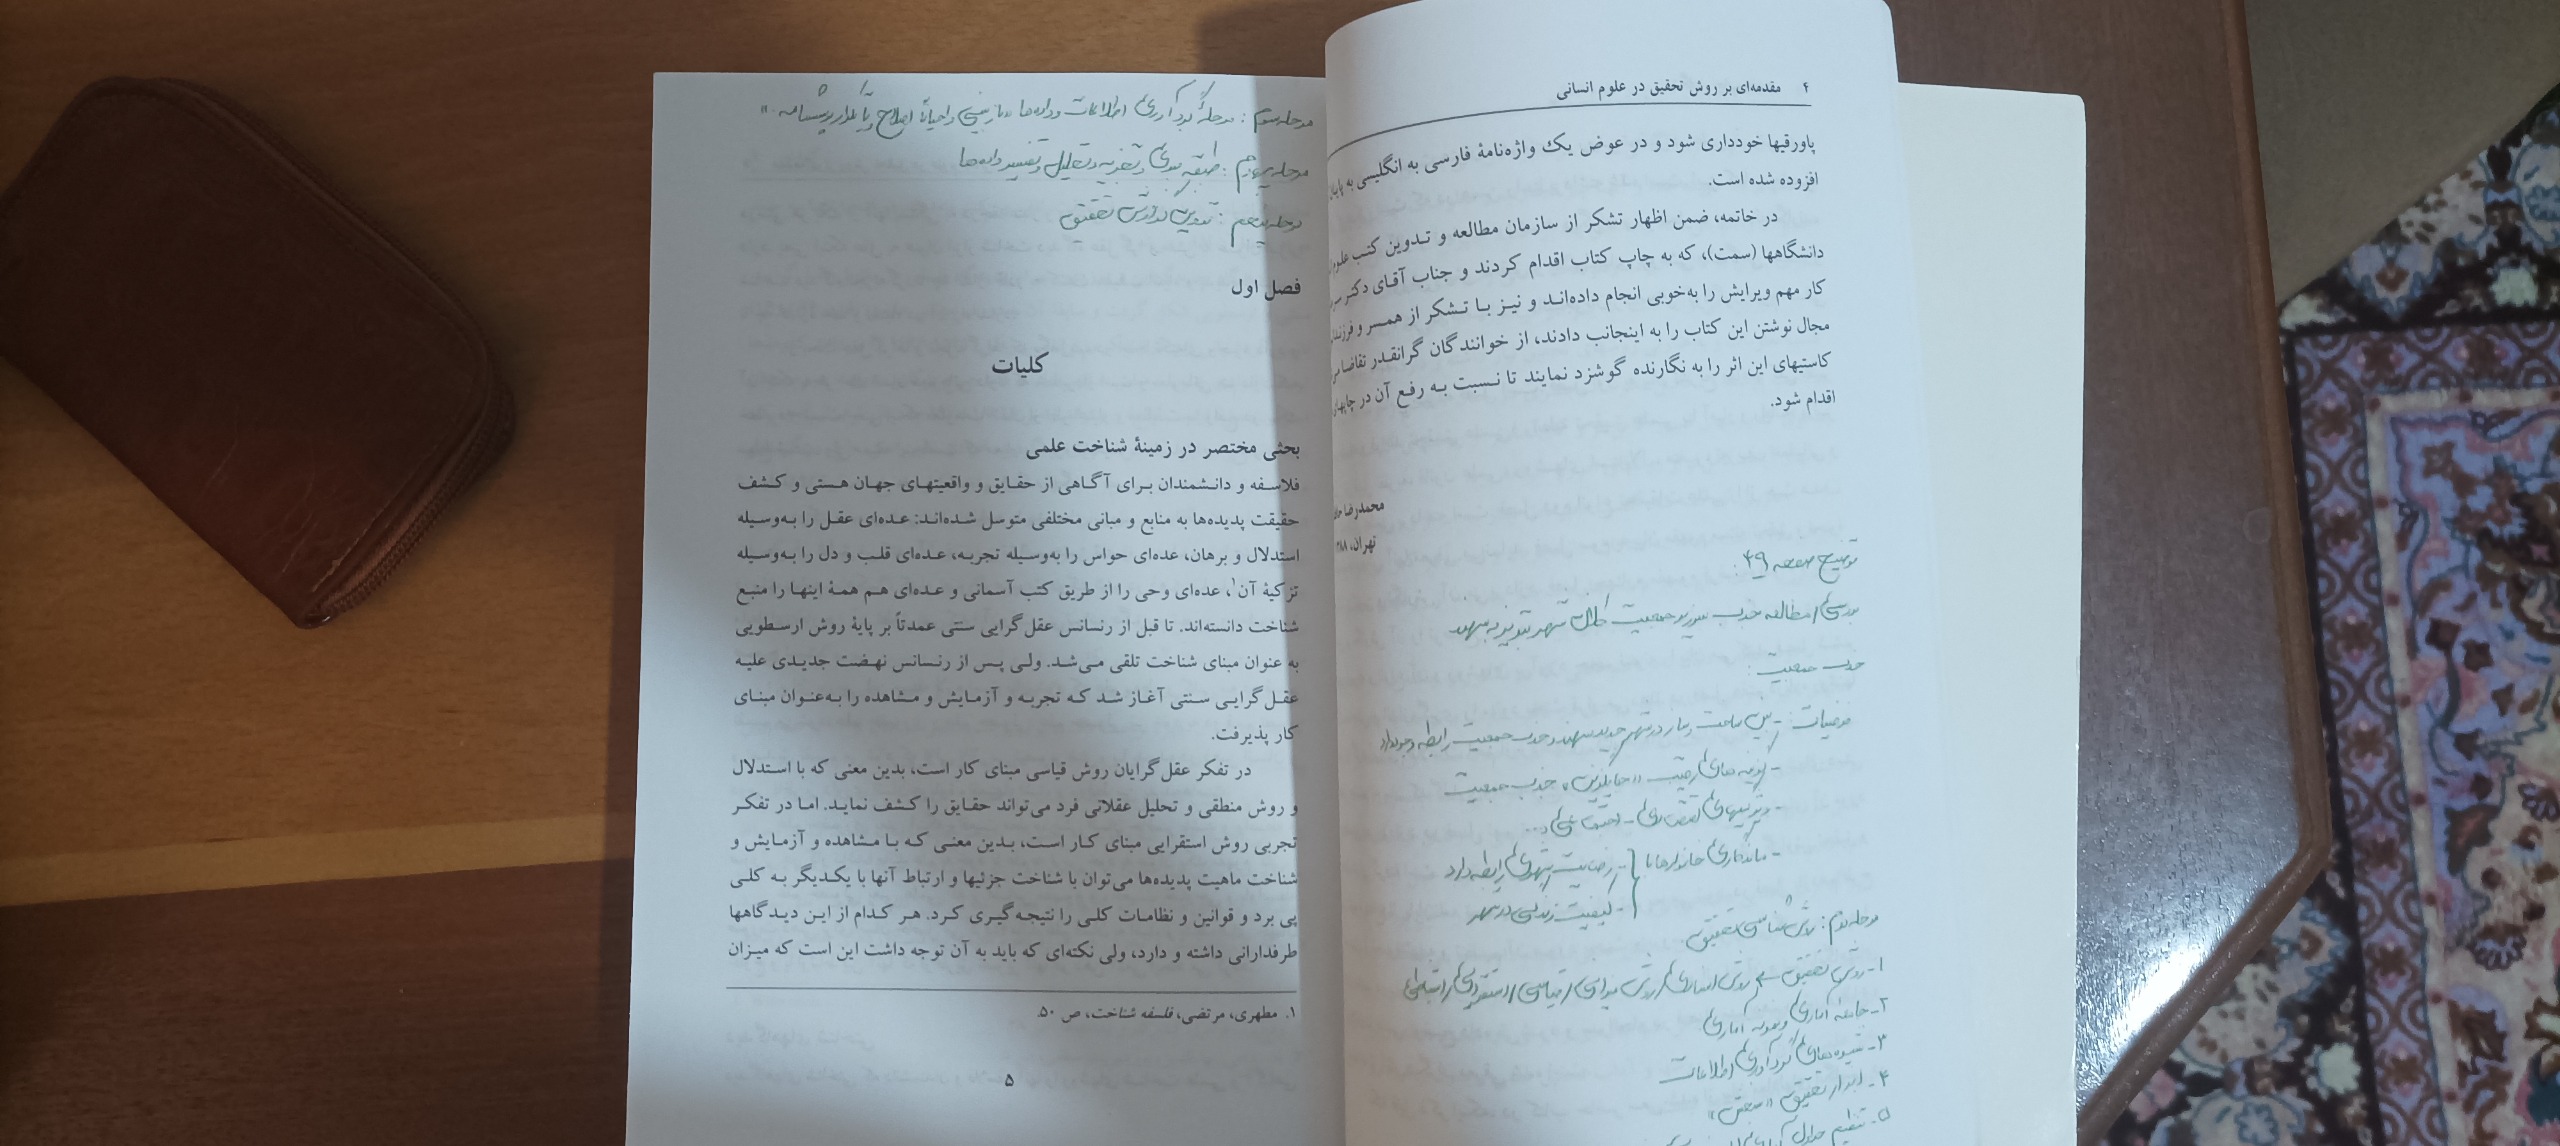 ۴ مقدمه‌ای بر روش تحقیق در علوم انسانی
پاورقیها خودداری شود و در عوض یک واژه‌نامهٔ فارسی به انگلیسی به پایان
افزوده شده است.
در خاتمه، ضمن اظهار تشکر از سازمان مطالعه و تدوین کتب علوم
دانشگاهها (سمت)، که به چاپ کتاب اقدام کردند و جناب آقای دکتر
کار مهم ویرایش را به‌خوبی انجام داده‌اند و نیز با تشکر از همسر و
مجال نوشتن این کتاب را به اینجانب دادند، از خوانندگان گرانقدر تقاضا
کاستیهای این اثر را به نگارنده گوشزد نمایند تا نسبت به رفع آن در
اقدام شود.
محمدرضا
تهران،
توضیح صفحه ۴۹:
بررسی/مطالعه جذب سرریز جمعیت کلان شهر تبریز به سهند
جذب جمعیت:
فرضیات: - بین ساخت و ساز در شهر جدید سهند و جذب جمعیت رابطه وجود دارد
- گزینه‌های رقیب «جایگزین» جذب جمعیت
- ویژگیهای اقتصادی - اجتماعی و...
- ماندگاری خانوارها با - رضایت شهری رابطه دارد
- کیفیت زندگی در شهر
مرحله دوم: روش شناسی تحقیق:
۱- روش تحقیق روش آماری/روش میدانی/قیاسی/استقرایی/
۲- جامعه آماری و نمونه آماری
۳- شیوه‌های گردآوری اطلاعات
۴- ابزار تحقیق «سنجش»
۵- تنظیم جداول
مرحله سوم: مرحلهٔ گردآوری اطلاعات و داده‌ها «بازبینی و احیاناً اصلاح و یا تکرار پرسشنامه.»
مرحله چهارم: طبقه بندی و تجزیه و تحلیل و تفسیر داده‌ها
مرحله پنجم: تدوین گزارش تحقیق
فصل اول
کلیات
بحثی مختصر در زمینهٔ شناخت علمی
فلاسفه و دانشمندان برای آگاهی از حقایق و واقعیتهای جهان هستی و کشف
حقیقت پدیده‌ها به منابع و مبانی مختلفی متوسل شده‌اند: عده‌ای عقل را به‌وسیله
استدلال و برهان، عده‌ای حواس را به‌وسیله تجربه، عده‌ای قلب و دل را به‌وسیله
تزکیهٔ آن۱، عده‌ای وحی را از طریق کتب آسمانی و عده‌ای هم همهٔ اینها را منبع
شناخت دانسته‌اند. تا قبل از رنسانس عقل‌گرایی سنتی عمدتاً بر پایهٔ روش ارسطویی
به عنوان مبنای شناخت تلقی می‌شد. ولی پس از رنسانس نهضت جدیدی علیه
عقل‌گرایی سنتی آغاز شد که تجربه و آزمایش و مشاهده را به‌عنوان مبنای
کار پذیرفت.
در تفکر عقل‌گرایان روش قیاسی مبنای کار است، بدین معنی که با استدلال
و روش منطقی و تحلیل عقلانی فرد می‌تواند حقایق را کشف نماید. اما در تفکر
تجربی روش استقرایی مبنای کار است، بدین معنی که با مشاهده و آزمایش و
شناخت ماهیت پدیده‌ها می‌توان با شناخت جزئیها و ارتباط آنها با یکدیگر به کلی
پی برد و قوانین و نظامات کلی را نتیجه‌گیری کرد. هر کدام از این دیدگاهها
طرفدارانی داشته و دارد، ولی نکته‌ای که باید به آن توجه داشت این است که میزان
۱. مطهری، مرتضی، فلسفه شناخت، ص ۵۰.
۵